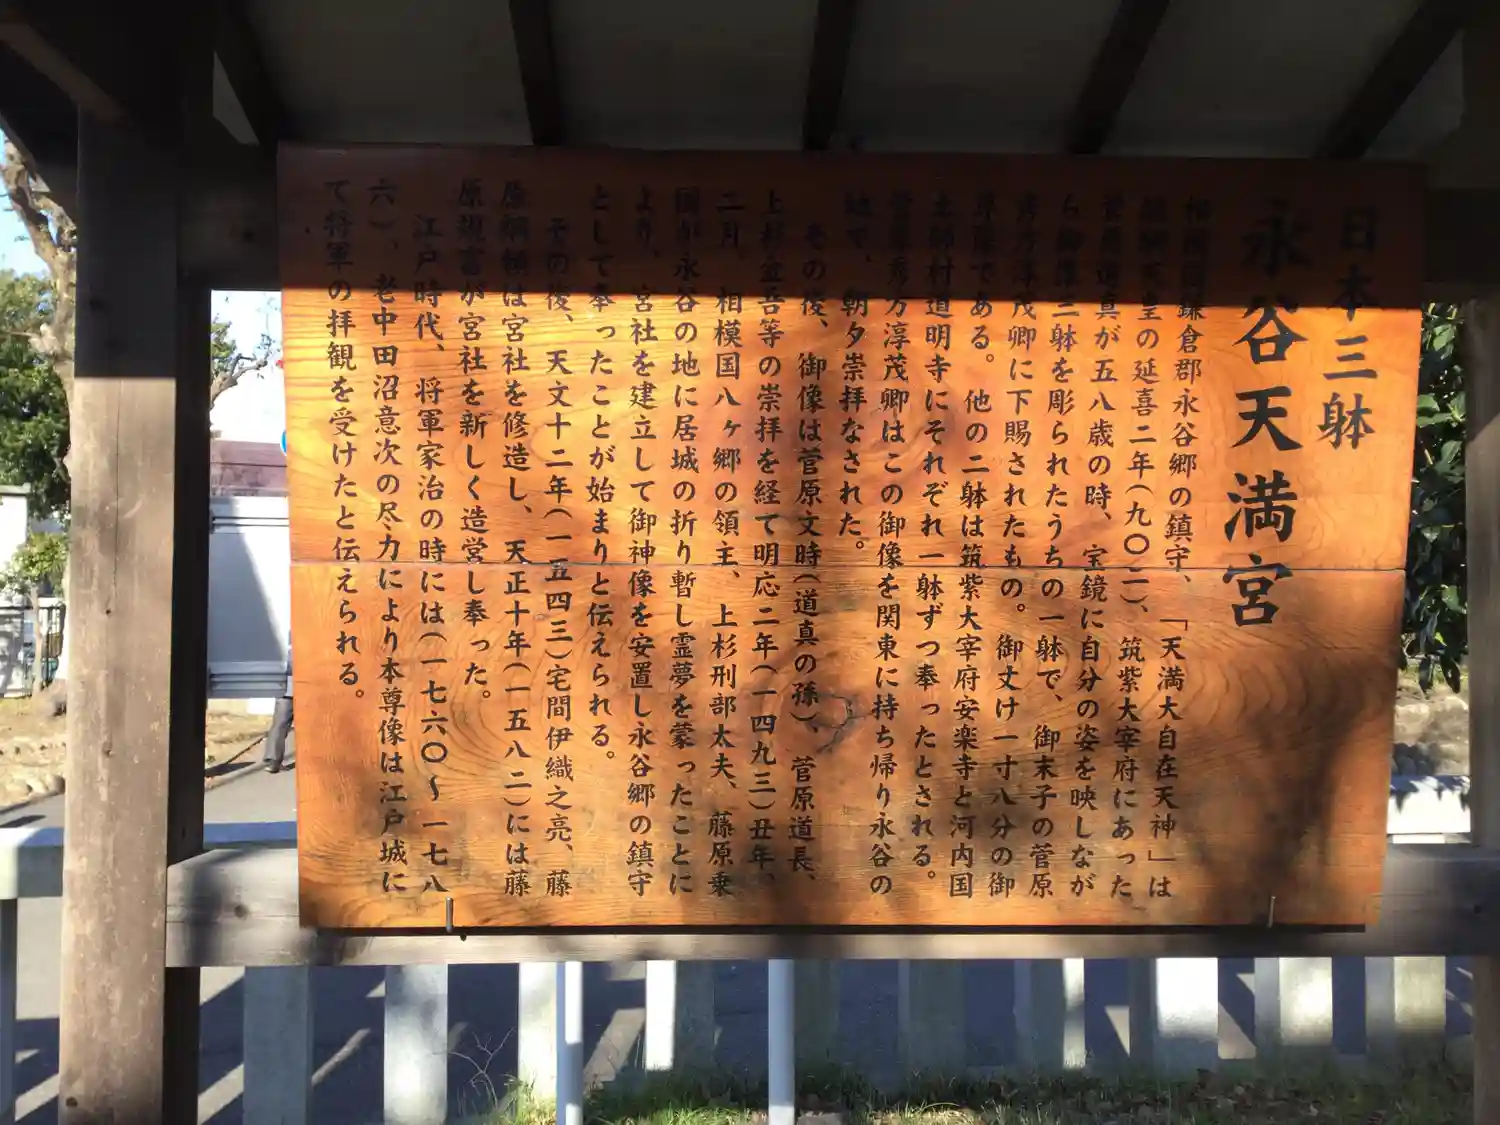 日本三躰
永谷天満宮
相模国鎌倉郡永谷郷の鎮守、「天満大自在天神」は
醍醐天皇の延喜二年(九〇二)、筑紫大宰府にあった
菅原道真が五八歳の時、宝鏡に自分の姿を映しなが
ら御像三躰を彫られたうちの一躰で、御末子の菅原
秀方淳茂卿に下賜されたもの。御丈け一寸八分の御
座像である。他の二躰は筑紫大宰府安楽寺と河内国
土師村道明寺にそれぞれ一躰ずつ奉ったとされる。
菅原秀方淳茂卿はこの御像を関東に持ち帰り永谷の
地で、朝夕崇拝なされた。
その後、御像は菅原文時(道真の孫)、菅原道長、
上杉金吾等の崇拝を経て明応二年(一四九三)丑年、
二月、相模国八ヶ郷の領主、上杉刑部太夫、藤原乗
国が永谷の地に居城の折り暫し霊夢を蒙ったことに
より、宮社を建立して御神像を安置し永谷郷の鎮守
として奉ったことが始まりと伝えられる。
その後、天文十二年(一五四三)宅間伊織之亮、藤
原綱頼は宮社を修造し、天正十年(一五八二)には藤
原規富が宮社を新しく造営し奉った。
江戸時代、将軍家治の時には(一七六〇〜一七八
六)、老中田沼意次の尽力により本尊像は江戸城に
て将軍の拝観を受けたと伝えられる。